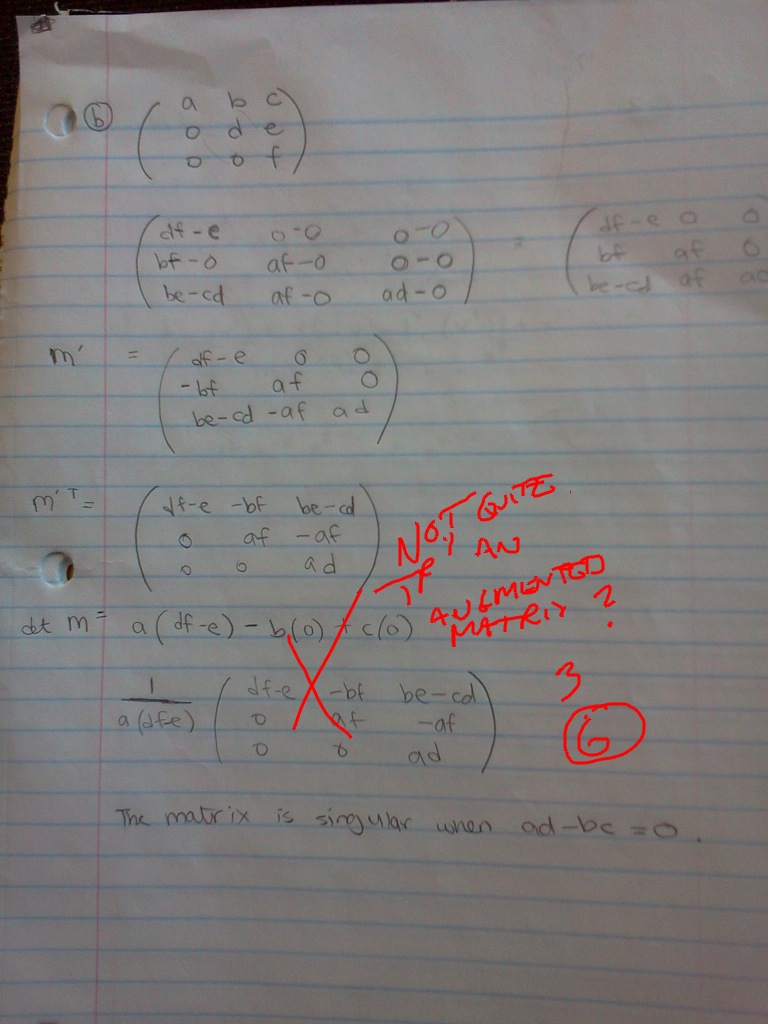 b ( a b c
0 d e
0 0 f )
( df-e 0-0 0-0
bf-0 af-0 0-0
be-cd af-0 ad-0 ) = ( df-e 0 0
bf af 0
be-cd af ad
m' = ( df-e 0 0
-bf af 0
be-cd -af ad )
m'T = ( df-e -bf be-cd
0 af -af
0 0 ad )
NOT QUITE.
AN
AUGMENTED
MATRIX ?
det m = a(df-e) - b(0) + c(0)
1/a(df-e) ( df-e -bf be-cd
0 af -af
0 0 ad )
3
6
The matrix is singular when ad-bc = 0.